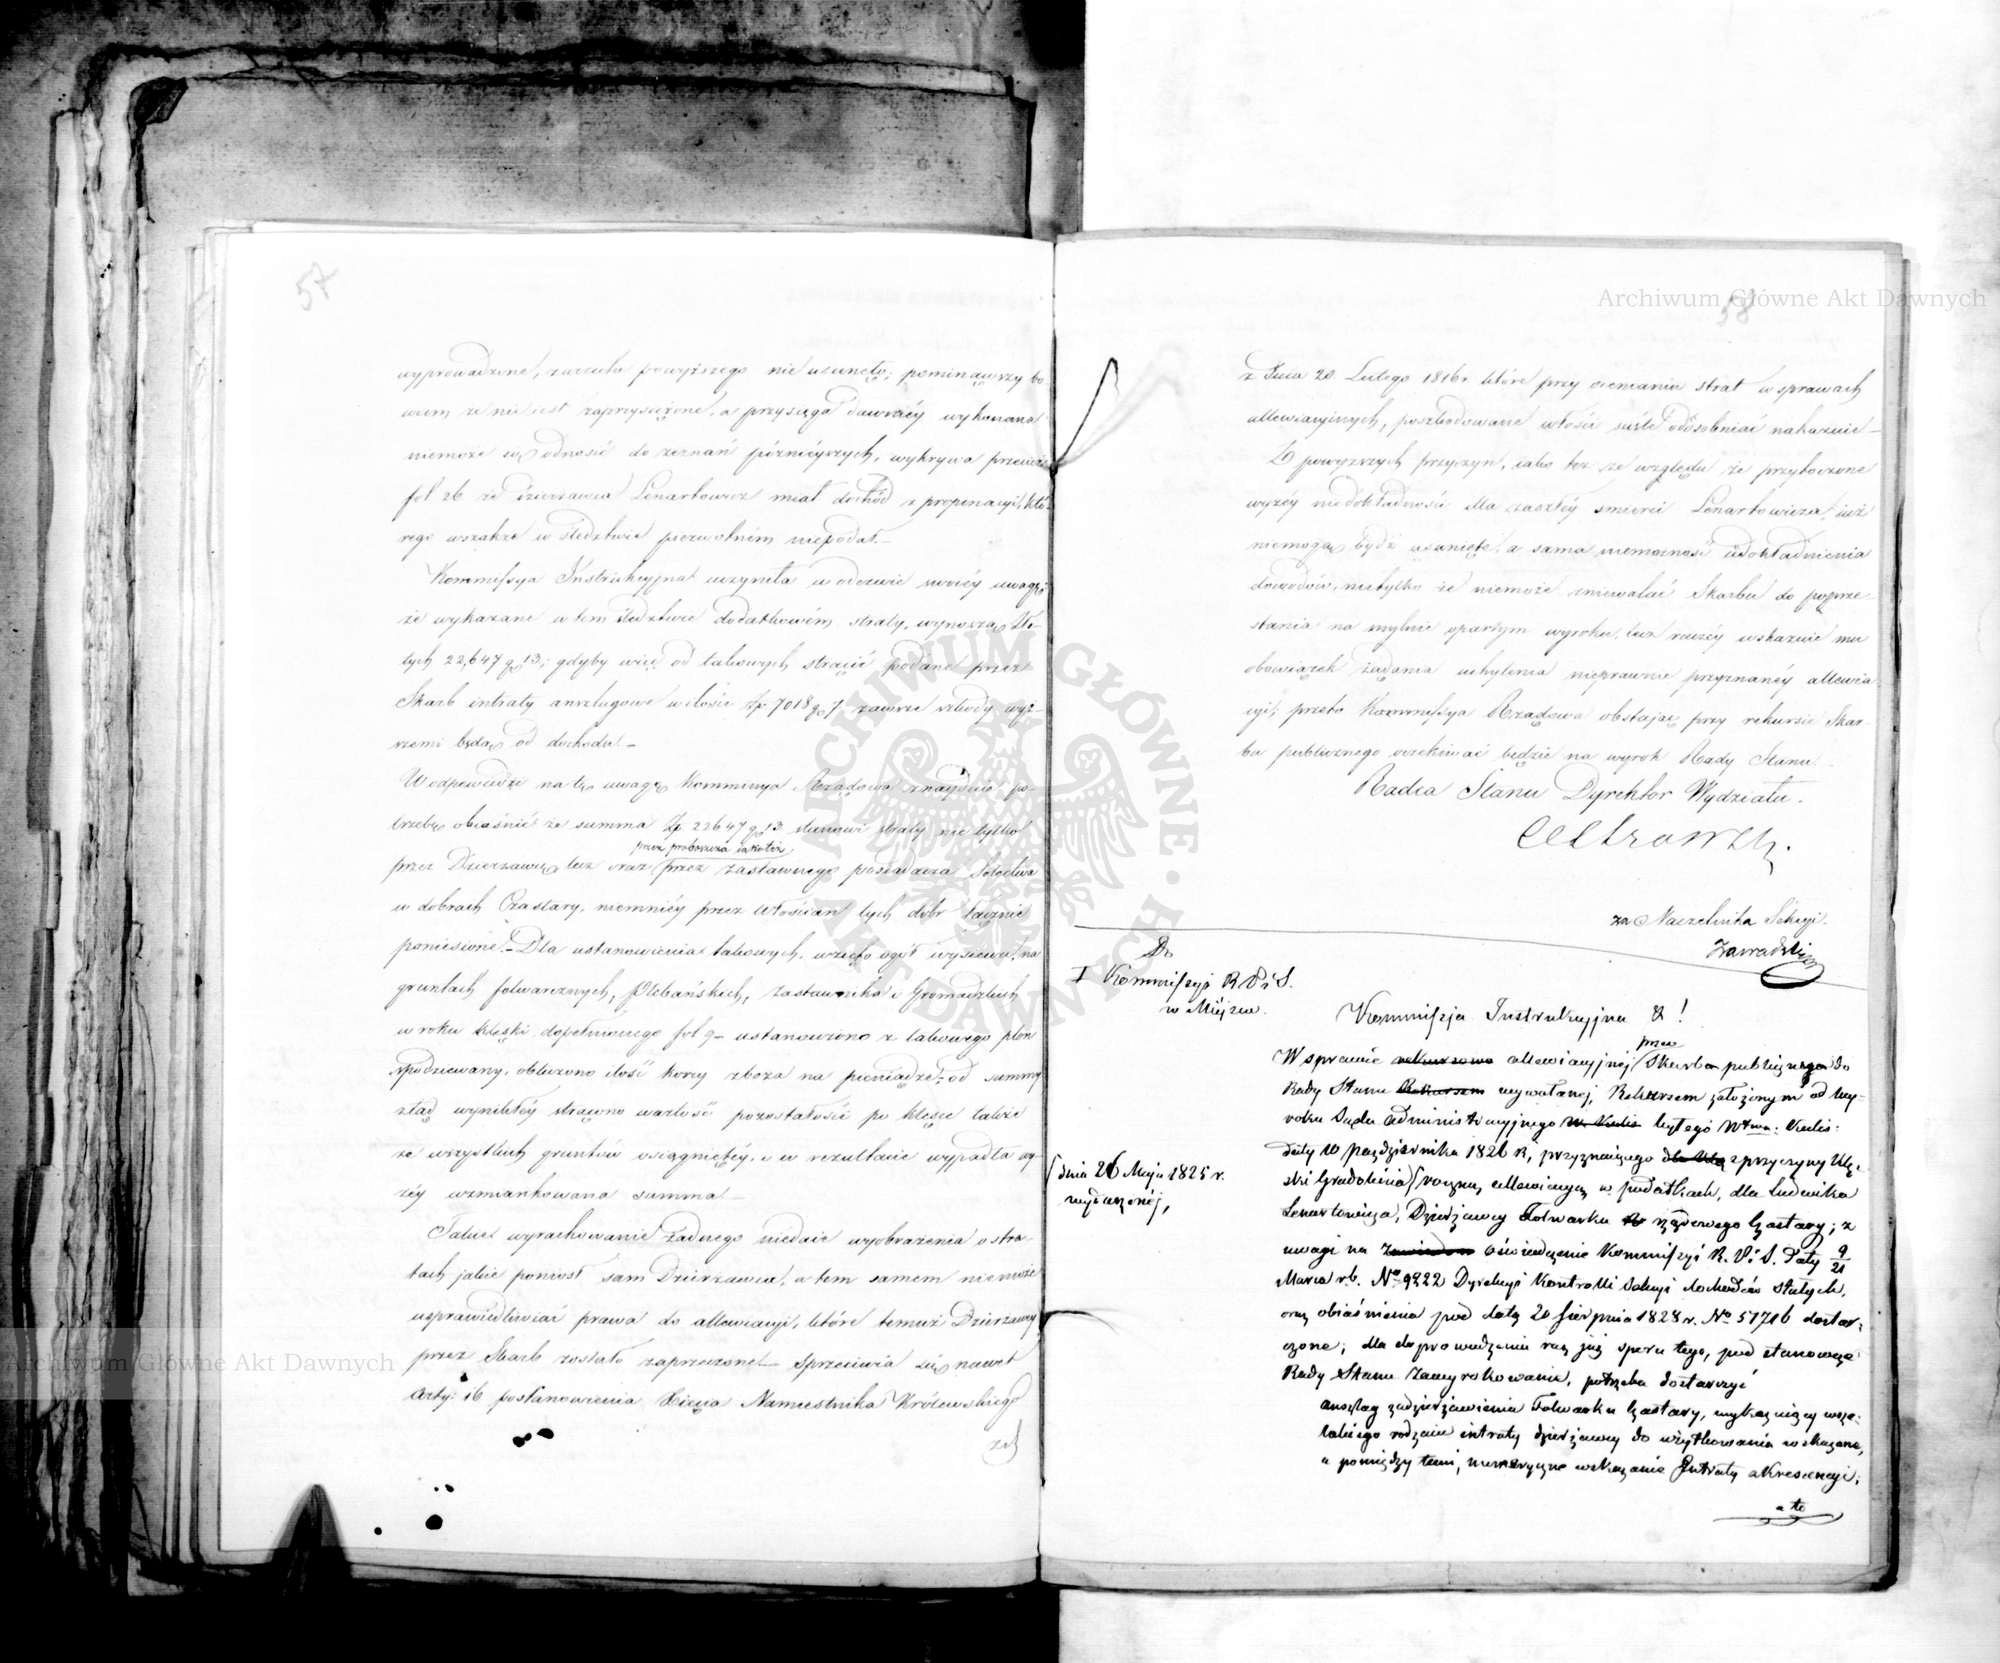 57
wyprowadzone, zarzutu powyższego nie usunęło; pominąwszy bo-
wiem że nie iest zaprzysiężone, a przysięga dawniéy wykonana
niemoże się odnosić do zeznań późniéyszych, wykrywa przecież
fol 26 że Dzierżawca Lenartowicz miał dochód z propinacyi, któ-
rego wszakże w śledztwie pierwotném niepodał.
Kommissya Instrukcyjna uczyniła w odezwie swoiéy uwagę;
że wykazane w tem śledztwie dodatkowém straty, wynoszą Zło-
tych 22,647 g 13; gdyby więc od takowych strącić podane przez
Skarb intraty anszlagowe w ilości Zp. 7018 g 7. zawsze szkody wyż-
szemi będą od dochodu. –
W odpowiedzi na tę uwagę Kommissya Rządowa znayduie po-
trzebę obiaśnić że summa Zp 22647 g 13 stanowi straty nie tylko
przez proboszcza iakotéż
przez Dzierżawcę lecz oraz przez zastawnego posiadacza Sołectwa
w dobrach Czastary, niemniéy przez Włościan tych dóbr łącznie
poniesione. – Dla ustanowienia takowych, wzięto ogół wysiewu, na
gruntach folwarcznych, Plebańskich, Zastawnika i Gromadzkich
w roku klęski dopełnionego fol 9 – ustanowiono z takowego plon
spodziewany, obliczono ilość korcy zboża na pieniądze; od summy
ztąd wynikłéy strącono wartość pozostałości po klęsce także
ze wszystkich gruntów osiągniętéy, i w rezultacie wypadła wy-
żéy wzmiankowana summa –
Takie wyrachowanie żadnego niedaie wyobrażenia o stra-
tach jakie poniosł sam Dzierżawca, a tem samem niemoże
usprawiedliwiać prawa do allewiacyi, które temuż Dzierżawcy
przez Skarb zostało zaprzeczone – Sprzeciwia się nawet
Arty: 16 postanowienia Xięcia Namiestnika Królewskiego
58
z Dnia 20 Lutego 1816 r które przy ocenianiu strat w sprawach
allewiacyinych, poszkodowane włości ściśle odosobniać nakazuie –
Z powyższych przyczyn, iako też ze względu że przytoczone
wyżéy niedokładności dla zaszłéy smierci Lenartowicza, iuż
niemogą bydź usunięte, a sama niemożność udokładnienia
dowodów, nietylko że niemoże zniewalać Skarbu do poprze-
stania na mylnie opartym wyroku, lecz raczéy wskazuie mu
obowiązek żądania uchylenia nieprawnie przyznanéy allewia-
cyi; przeto Kommissya Rządowa obstaiąc przy rekursie Skar-
bu publicznego oczekiwać będzie na wyrok Rady Stanu. –
Radca Stanu Dyrektor Wydziału.
za Naczelnika Sekcyi.
Zawadzki
Do
I Kommissyi R P i S.
w Miejscu.
Kommissja Instrukcyjna & !
przez
W sprawie rekursowo allewiacyjnej Skarb publicznego do
Rady Stanu Rekursem wywołanej, Rekursem założonym od wy-
roku Sądu Administracyjnego w Kalis byłego Wtwa: Kalis:
daty 10 Października 1826 R, przyznaiącego dla Klę z przyczyny Klę-
ski Gradobicia roczną allewiacyą w podatkach, dla Ludwika
dnia 26 Maja 1825 r.
wydarzonéj,
Lenartowicza, Dzierżawcy Folwarku rządowego Czastary; z
uwagi na oświadczenie Kommissyi R. P. i S. Daty 9/21
Marca r b. No 9222 Dyrekcyi Kontrolli Sekcyi dochodów Stałych,
oraz obiaśnienia pod datą 20 Sierpnia 1828 r. No 51716 dostar-
czone; dla doprowadzenia raz już sporu tego, pod stanowcze
Rady Stanu zawyrokowanie, potrzeba dostarczyć
anszlag zadzierżawienia Folwarku Czastary, wykazuiący wsze-
lakiego rodzaiu intraty dzierżawcy do użytkowania wskazane,
a pomiędzy temi, numeryczne wskazanie Intraty z Krescencyi;
a to
Archiwum Główne Akt Dawnych
Archiwum Główne Akt Dawnych
ARCHIWUM GŁÓWNE · AKT DAWNYCH ·